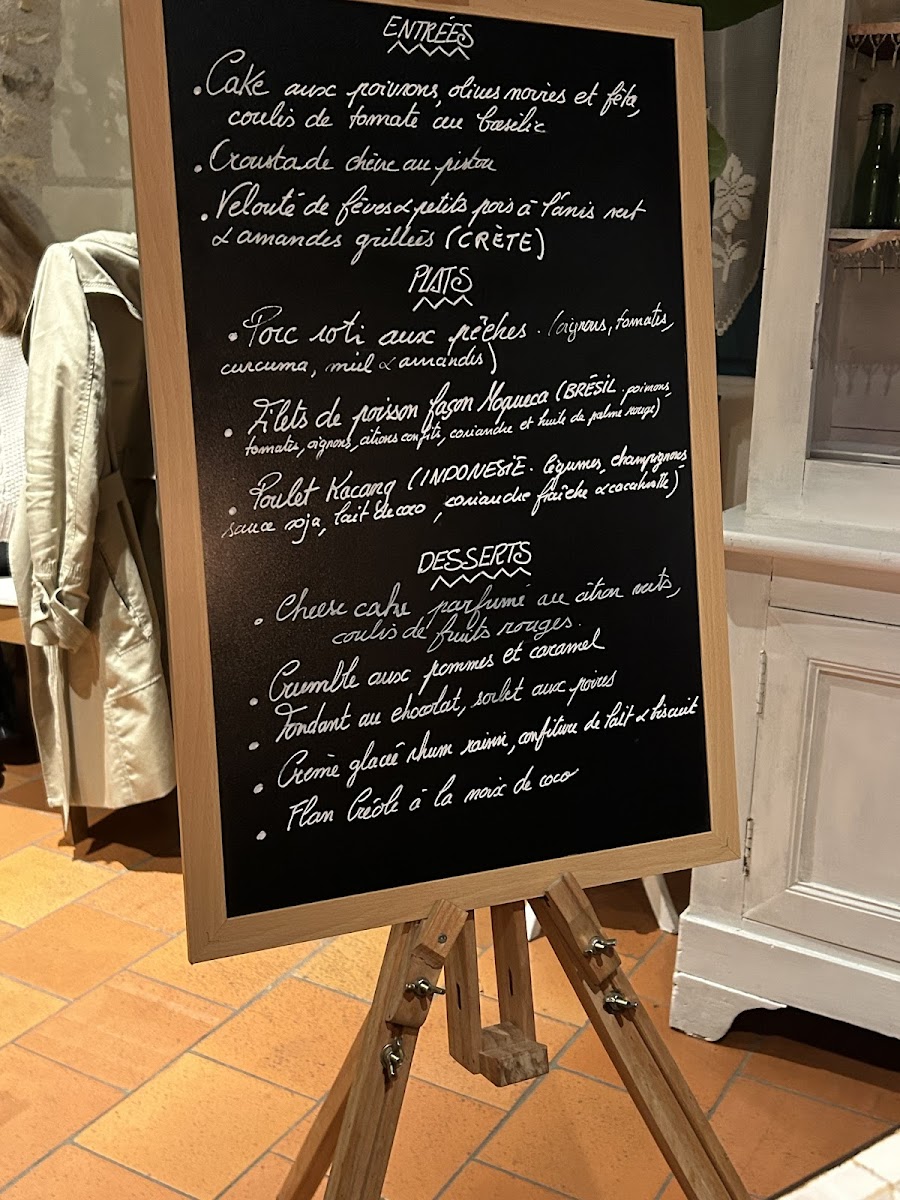 ENTRÉES
• Cake aux poivrons, olives noires et féta,
coulis de tomate au basilic
• Croustade chèvre au pistou
• Velouté de fèves & petits pois à l'anis vert
& amandes grillées (CRÈTE)
PLATS
• Porc roti aux pêches. (oignons, tomates,
curcuma, miel & amandes)
• Filets de poisson façon Moqueca (BRÉSIL. poivrons
tomates, oignons, citrons confits, coriandre et huile de palme rouge)
• Poulet Kacang (INDONESIE. légumes, champignons
sauce soja, lait de coco, coriandre fraîche & cacahuète)
DESSERTS
• Cheese cake parfumé au citron verts,
coulis de fruits rouges.
• Crumble aux pommes et caramel
• Fondant au chocolat, sorbet aux poires
• Crème glacée rhum raisin, confiture de lait & biscuit
• Flan Créole à la noix de coco